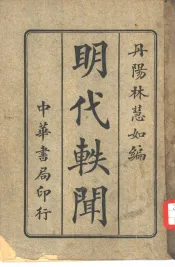 丹陽林慧如編
明代軼聞
中華書局印行